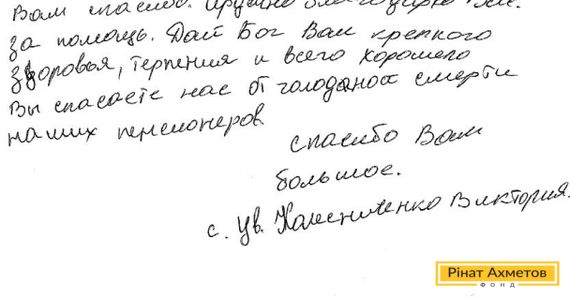 Вам спасибо. Искренно благодарна Вам.
за помощь. Дай Бог Вам крепкого
здоровья, терпения и всего хорошего
Вы спасаете нас от голодной смерти
наших пенсионеров
спасибо Вам
большое.
с. ув. Виктория.
Рінат Ахметов
ФОНД